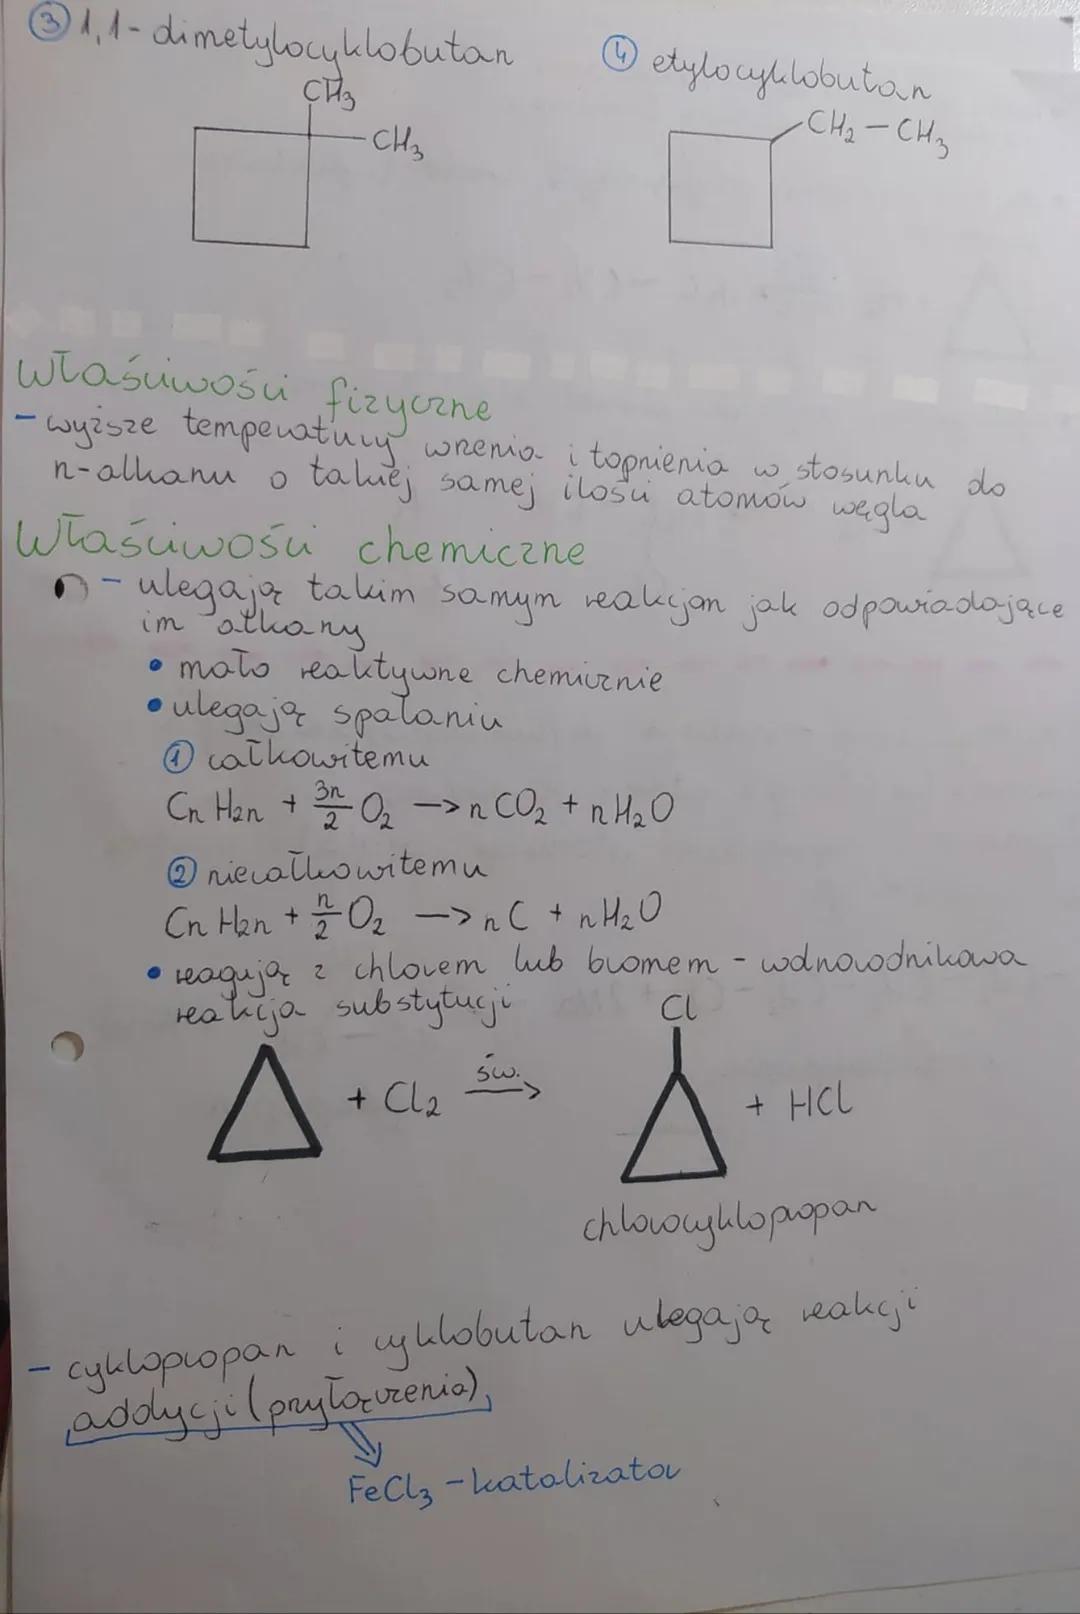 ③ 1,1-dimetylocyklobutan
④ etylocyklobutan
CH3
CH3
CH2-CH3
Właściwości fizyczne
- wyższe temperatury wrzenia i topnienia w stosunku do
n-alkanu o takiej samej ilości atomów węgla
Właściwości chemiczne
- ulegają takim samym reakcjon jak odpowiadające
im alkany
• mało reaktywne chemicznie
• ulegają spalaniu
① całkowitemu
CnH2n + 3n/2 O2 -> nCO2 + nH2O
② niecałkowitemu
CnH2n + n/2 O2 -> nC + nH2O
• reagują z chlorem lub bromem - wolnorodnikowa
reakcja substytucji
Cl
+ Cl2 św. -> + HCl
chlorocyklopropan
- cyklopropan i cyklobutan ulegają reakcji
addycji (przyłączenia)
FeCl3 - katalizator